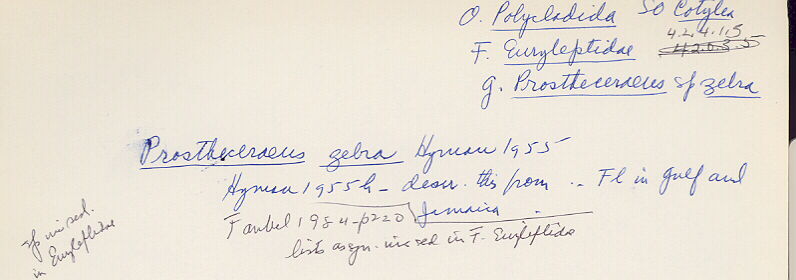 O. Polycladida SO Cotylea
4.2.4.115
F. Euryleptidae
g. Prostheceraeus sp zebra
Prostheceraeus zebra Hyman 1955
Hyman 1955h - descr. this from .. Fl in Gulf and
Faubel 1984-p220 Jamaica .
lists as gen. inc sed in F. Euryleptida
sp inc sed.
in Euryleptidae